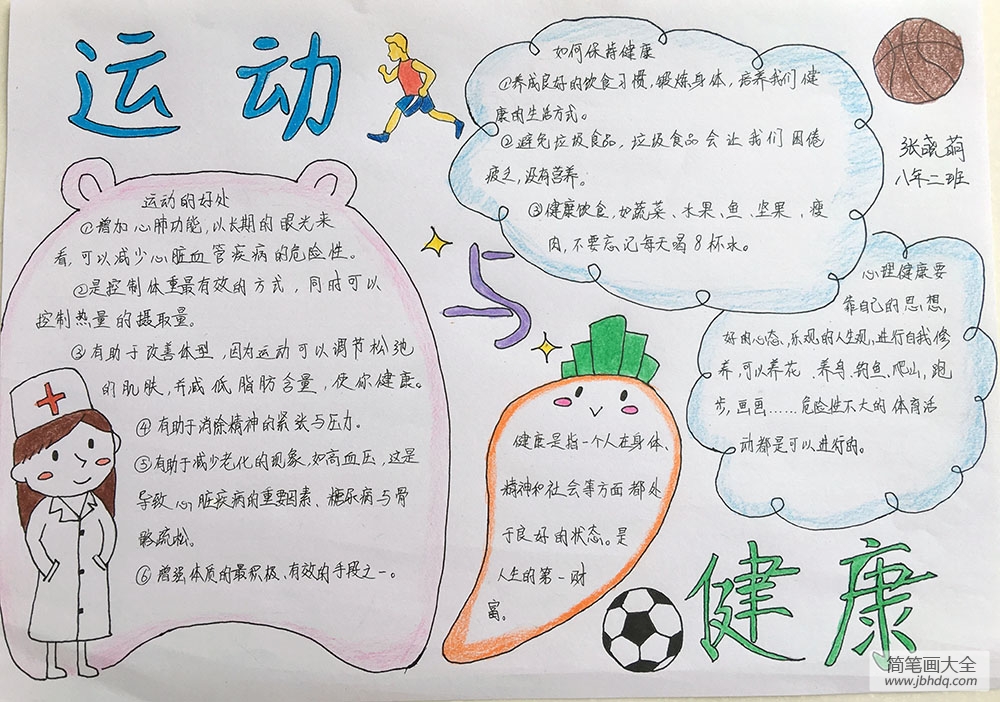 运动
与
健康
运动的好处
①增加心肺功能,以长期的眼光来
看,可以减少心脏血管疾病的危险性。
②是控制体重最有效的方式,同时可以
控制热量的摄取量。
③有助于改善体型,因为运动可以调节松弛
的肌肤,并减低脂肪含量,使你健康。
④有助于消除精神的紧张与压力。
⑤有助于减少老化的现象,如高血压,这是
导致心脏疾病的重要因素、糖尿病与骨
骼疏松。
⑥增强体质的最积极、有效的手段之一。
如何保持健康
①养成良好的饮食习惯,锻炼身体,培养我们健
康的生活方式。
②避免垃圾食品,垃圾食品会让我们困倦
疲乏,没有营养。
③健康饮食,如蔬菜、水果、鱼、坚果、瘦
肉,不要忘记每天喝8杯水。
张晟萌
八年二班
心理健康要
靠自己的思想,
好的心态,乐观的人生观,进行自我修
养,可以养花、养鸟、钓鱼、爬山,跑
步,画画……危险性不大的体育活
动都是可以进行的。
健康是指一个人在身体、
精神和社会等方面都处
于良好的状态。是
人生的第一财
富。
简笔画大全
www.jbhdq.com